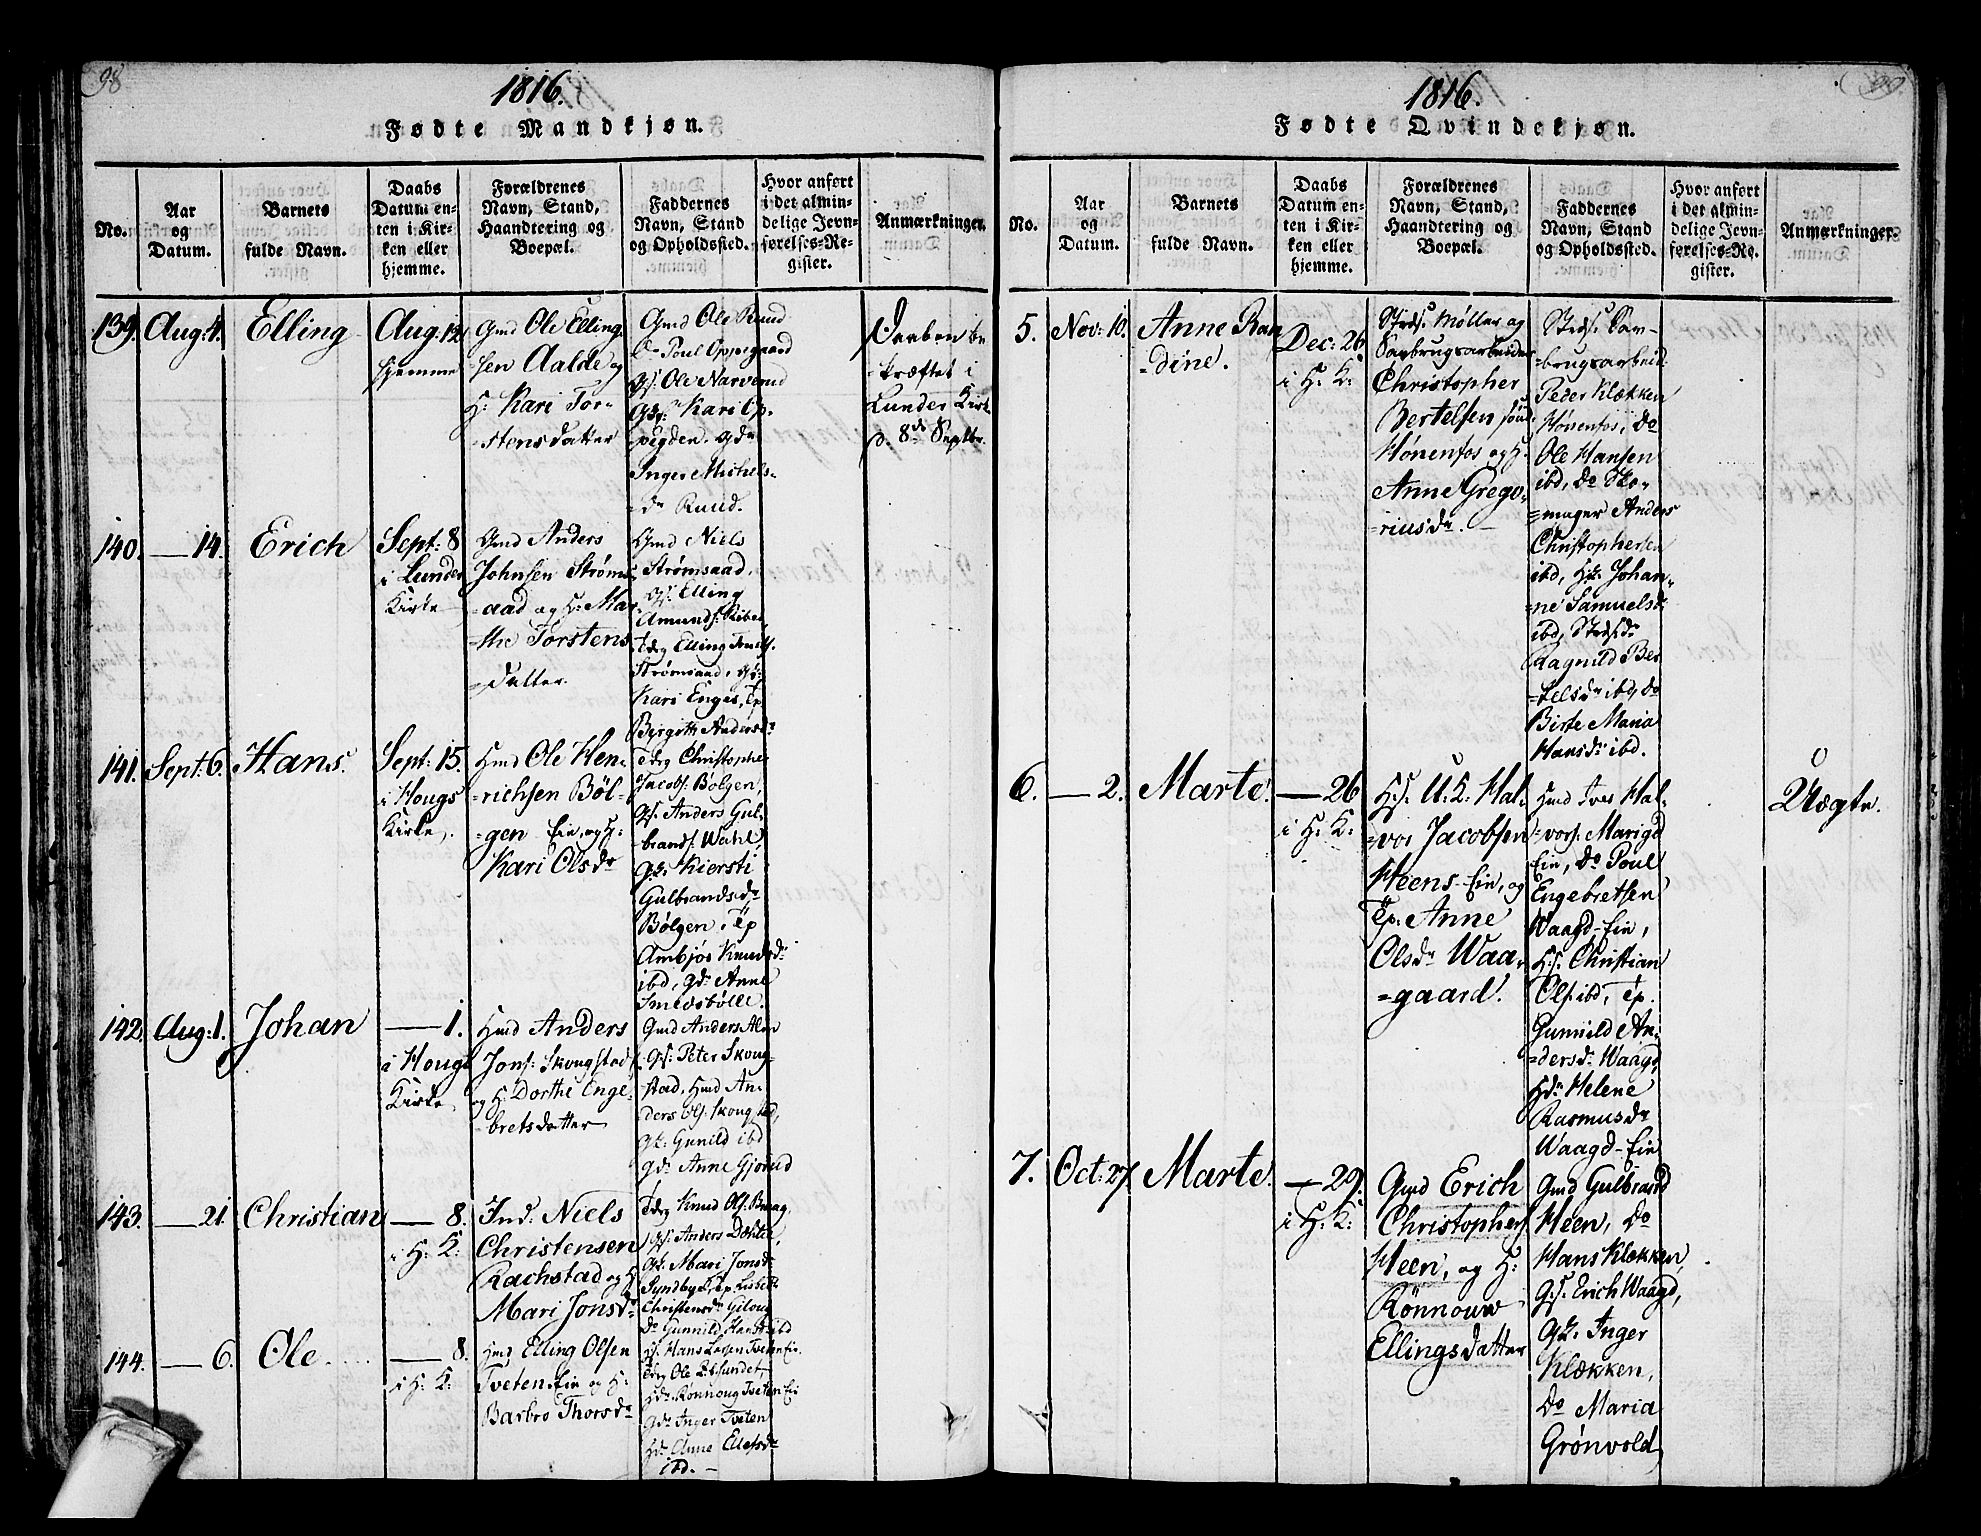 98
1816.
Fødte Mandkjøn.
No.
Aar
og
Datum.
Barnets
fulde Navn.
Daabs
Datum en-
ten i Kir-
ken eller
hjemme.
Forældrenes
Navn, Stand,
Haandtering og
Boepæl.
Faddernes
Navn, Stand
og Opholdssted.
Hvor anført
i det almin-
delige Jevn-
førelses-Re-
gister.
Anmærkninger.
139. Aug: 4. Elling
Aug. 12
hjemme
Gmd Ole Elling-
sen Aalde og
H: Kari Tor-
stensdatter
Gmd Ole Ruud
Do Poul Oppegaard
Gs. Ole Narverud
Kari Op-
pegden. gdr
Inger Michels-
dr Ruud.
Daaben be
kræftet i
Lunder Kirke
d. 8de Septbr.
140. — 14. Erich
Sept: 8
i Lunder
Kirke
Gmd Anders
Johnsen Strøms-
aad og H: Mar-
the Torstens
datter
Gmd Niels
Strømsaad,
gs. Elling
Amunds.
Elling
Strømsaad,
Kari Enges, Tp
Birgith Andersdr
141. Sept: 6. Hans.
Sept: 15.
i Hougs
Kirke.
Hmd Ole Hen-
richsen Böl-
gen Ein. og H:
Kari Olsdr
Tdrg Christopher
Jacobs. Bölgen,
gs. Anders Gul-
brands. Wahl,
Kiersti
Gulbrandsdr
Bölgen, Tp
Ambjör Knudsdr
ibd, gdr Anne
Smedsbölle.
142. Aug: 1. Johan
— 1.
i Hougs
Kirke
Hmd Anders
Jons: Skougstad
og H: Dorthe Enge-
bretsdatter
Gmd Anders
gs. Peter Skoug-
stad, Hmd An-
ders Ols. Skougstad,
Gunild ibd
gdr Anne Gjørud
143. — 21. Christian
— 8.
i H: K:
Ind: Niels
Christensen
Rachstad og H
Mari Jonsdr
Tdrg Knud Ols.
gs. Anders
Mari Jonsdr
Tp Lisbeth
Christensdr
Do Gunnild Hansdr ibd
144. — 6. Ole.
— 8.
i H: K:
Hmd Elling Olsen
Tveten Ein og H:
Barbro Thorsdr
Hs. Hans Larsen Tveten Ein.
Tdrg Ole
Hdr Rönnoug Tveten Ei
Gdr Inger Tveten
Hdr Anne Ellefsdr
ibd. —
99
1816.
Fødte Qvindekjøn.
No.
Aar
og
Datum.
Barnets
fulde Navn.
Daabs
Datum en-
ten i Kir-
ken eller
hjemme.
Forældrenes
Navn, Stand,
Haandtering og
Boepæl.
Faddernes
Navn, Stand
og Opholdssted.
Hvor anført
i det almin-
delige Jevn-
førelses-Re-
gister.
Anmærkninger.
5. Nov: 10. Anne Ran
dine.
Dec: 26
i H: K:
Møller og
Saugbrugsarbeider
Christopher
Bertelsen
Hönenfos og H:
Anne Grego-
riusdr. —
brugsarbeid:
Peder Klækken
Hönenfos, Do
Ole Hansen
ibd, Do Sko-
mager Anders
Christophersen
ibd, Johan-
ne Samuelsdr
ibd,
Ragnild Ber-
telsdr ibd, Do
Birte Maria
Hansdr ibd.
6. — 2. Marte.
— 26
i H: K:
Hs. U: K: Hal-
vor Jacobsen
Heens-Ein, og
Tp: Anne
Olsdr Waa-
gaard.
Hmd Iver Hal-
vors. Marigd
Ein, Do Poul
Engebretsen
Waagd-Ein,
Hs. Christian
Ols. ibd, Tp.
Gunnild An-
dersdr Waagd,
Hdr Helene
Rasmusdr
Waagd-Ein
Uægte.
7. Oct: 27. Marte.
— 29.
i H: K:
Gmd Erich
Christophers
Heen, og H:
Rönnouw
Ellingsdatter
Gmd Gulbrand
Heen, Do
Hans Klækken,
gs. Erich Waagd,
Inger
Klækken,
Do Maria
Grönvold